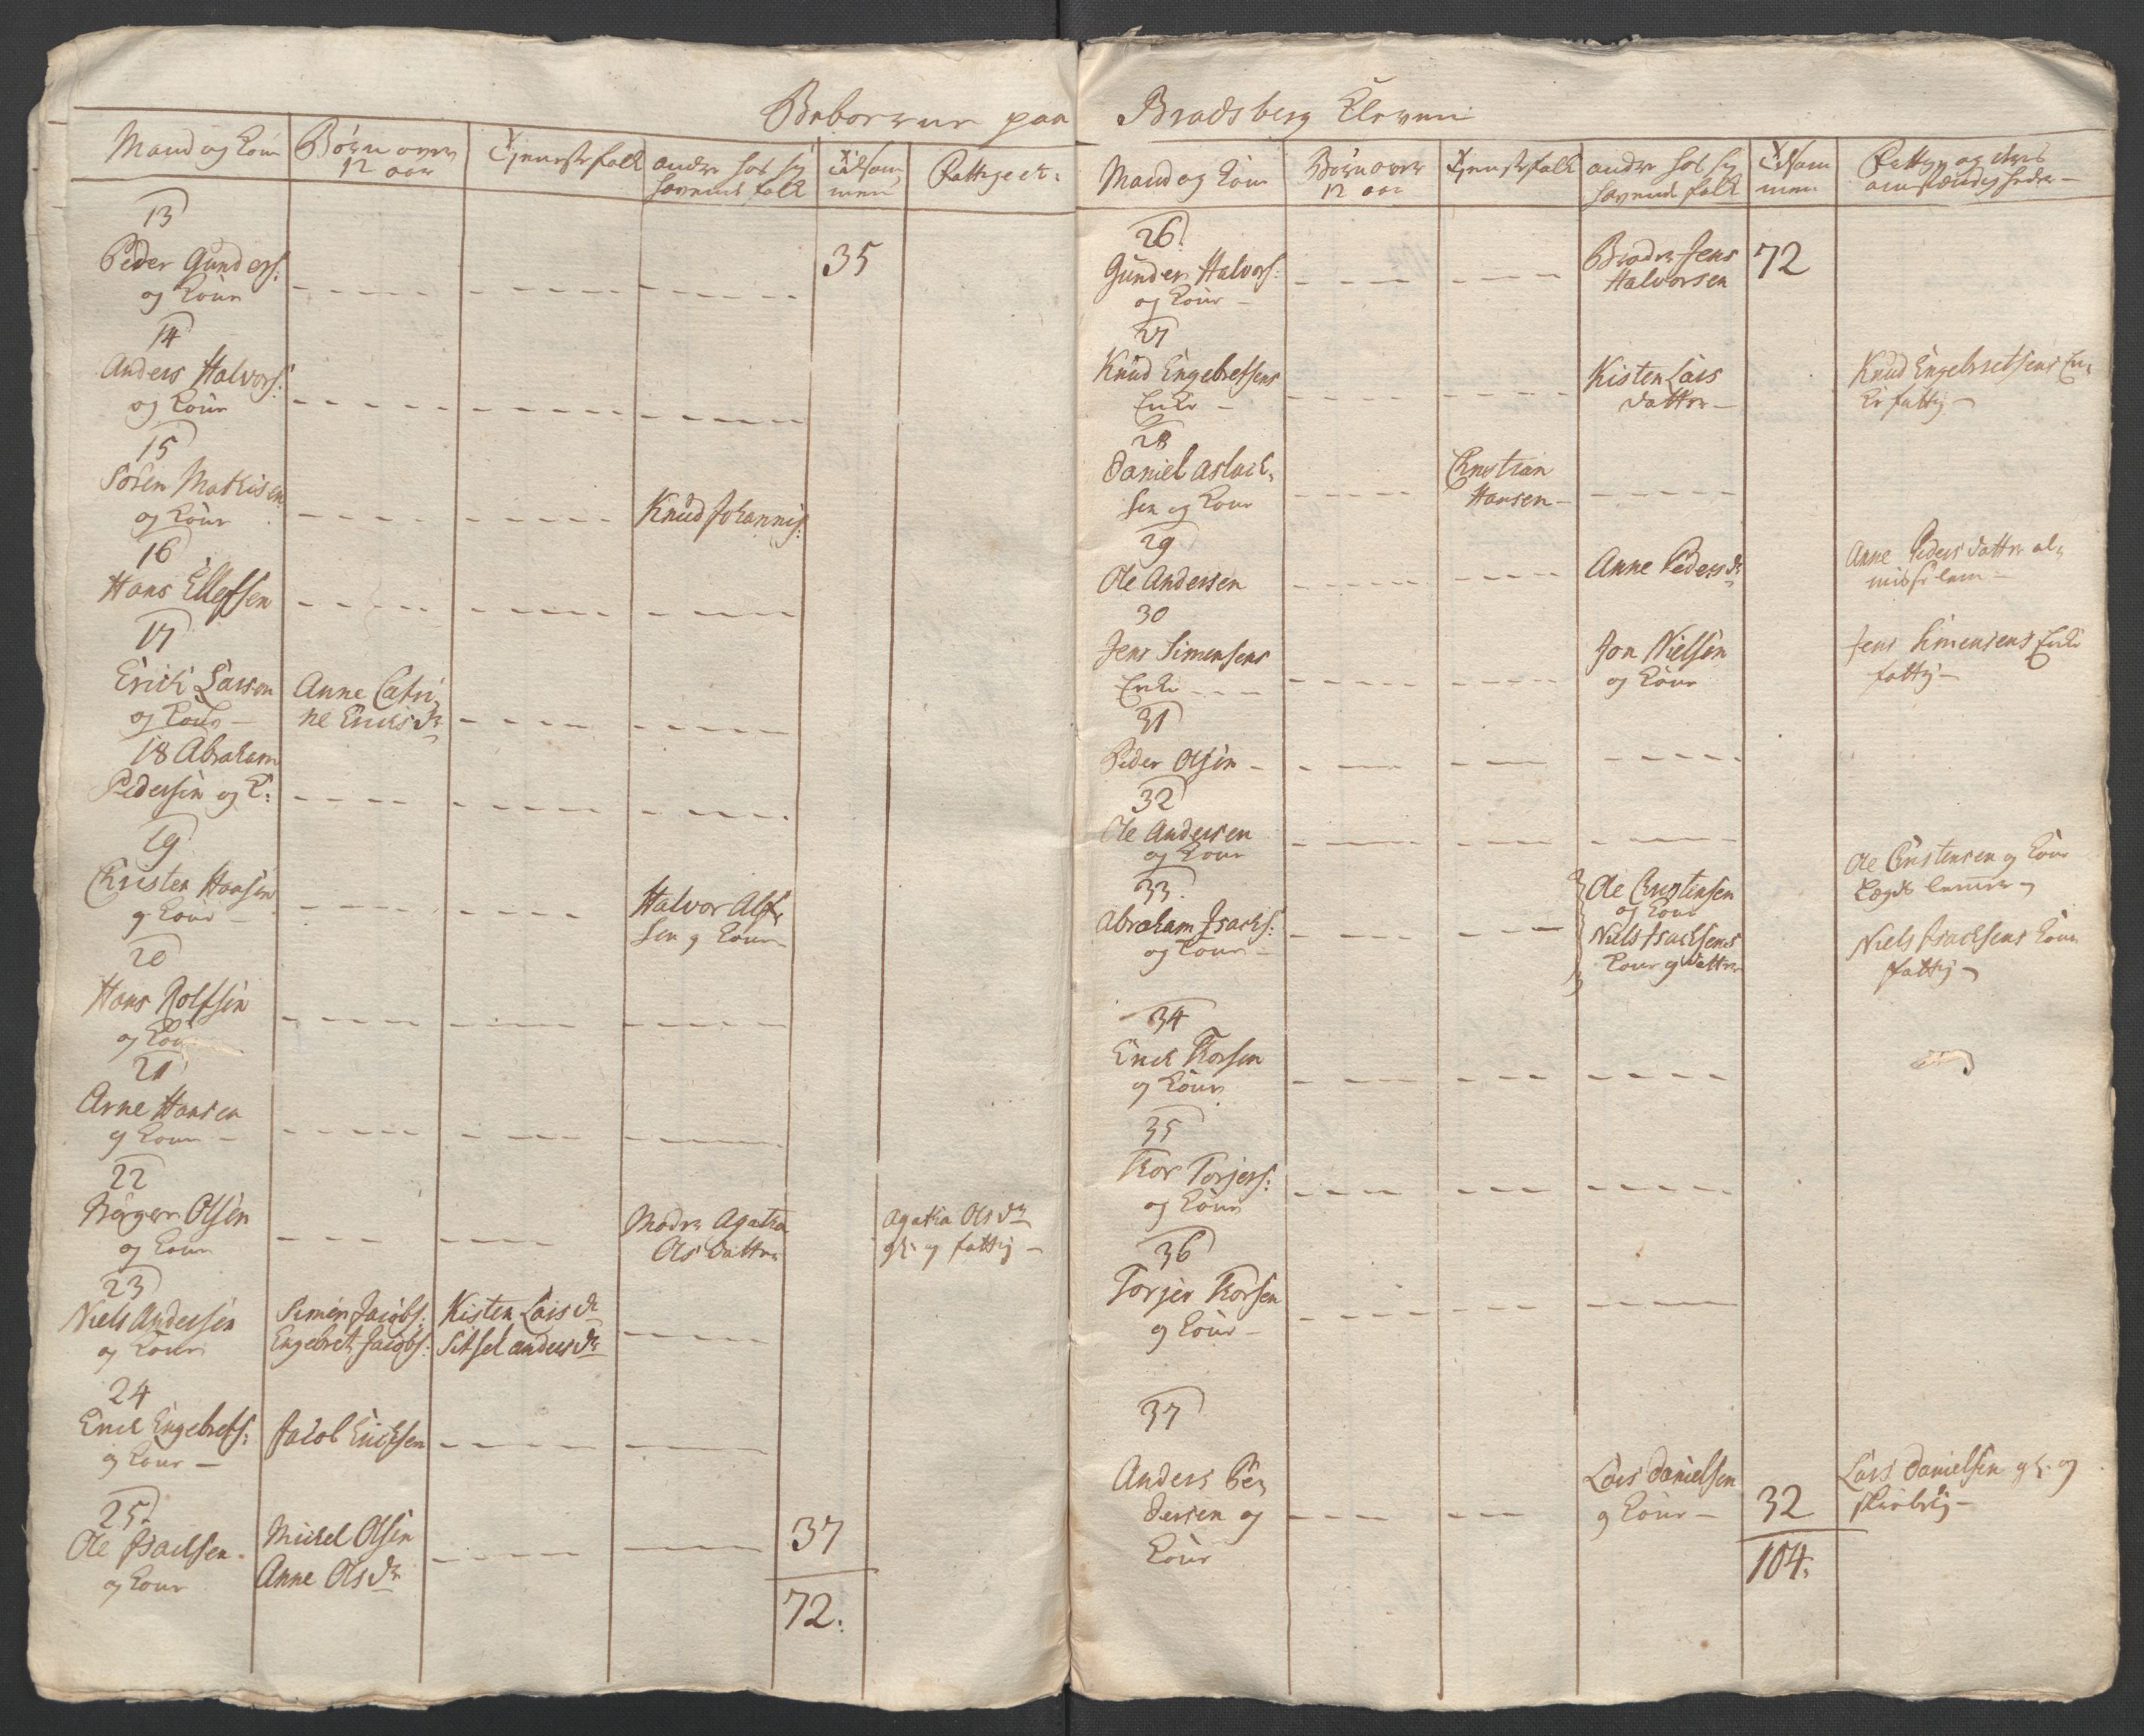 Beboerne paa Bradsberg Cleven
Mand og Kone
Børn over
12 aar
Tjenestefolk
andre hos sig
havende folk
Tilsam
men
Fattige etc:
13
Peder Gunders:
og Kone
35
14
Anders Halvors:
og Kone
15
Søren Mathisen
og Kone
Knud Johannis:
16
Hans Ellefsen
17
Erich Larsen
og Kone
Anne Catri
ne Erichs dr
18 Abraham
Pedersen og K:
19
Christen Hansen
og Kone
Halvor Alf
sen og Kone
20
Hans Rolfsen
og Kone
21
Arne Hansen
og Kone
22
Børger Olsen
og Kone
Modr Agatha
Ols datter
Agatha Ols dr
gl: og fattig
23
Niels Andersen
og Kone
Simon Jacobs:
Engebret Jacobs:
Kisten Lars dr
Sitsel anders dr
24
Erich Engebrets:
og Kone
Jacob Erichsen
25
Ole Isachsen
og Kone
Michel Olsen
Anne Ols dr
37
72.
Mand og Kone
Børn over
12 aar
Tjenestefolk
andre hos sig
havende folk
Tilsam
men
Fattige og deres
omstændigheder
26.
Gunder Halvors:
og Kone
Broder Jens
Halvorsen
72
27
Knud Engebretsens
Enke
Kisten Lars
datter
Knud Engebretsens En
ke fattig
28
Daniel Aslach
sen og Kone
Christian
Hansen
29
Ole Andersen
Anne Peders dr
Anne Peders datter al
misse lem
30
Jens Simensens
Enke
Jon Nielsen
og Kone
Jens Simensens Enke
fattig
31
Peder Olsen
32
Ole Andersen
og Kone
33.
Abraham Isachs:
og Kone
Ole Christensen
og Kone
Niels Isachsens
Kone og datter
Ole Christensen og Kone
Lægds lemmer
Niels Isachsens Kone
fattig
34
Erich Thorsen
og Kone
35
Thor Torjers:
og Kone
36
Torjer Thorsen
og Kone
37
Anders Pe
dersen og
Kone
Lars Danielsen
og Kone
32
Lars Danielsen gl: og
skrøbelig
104.